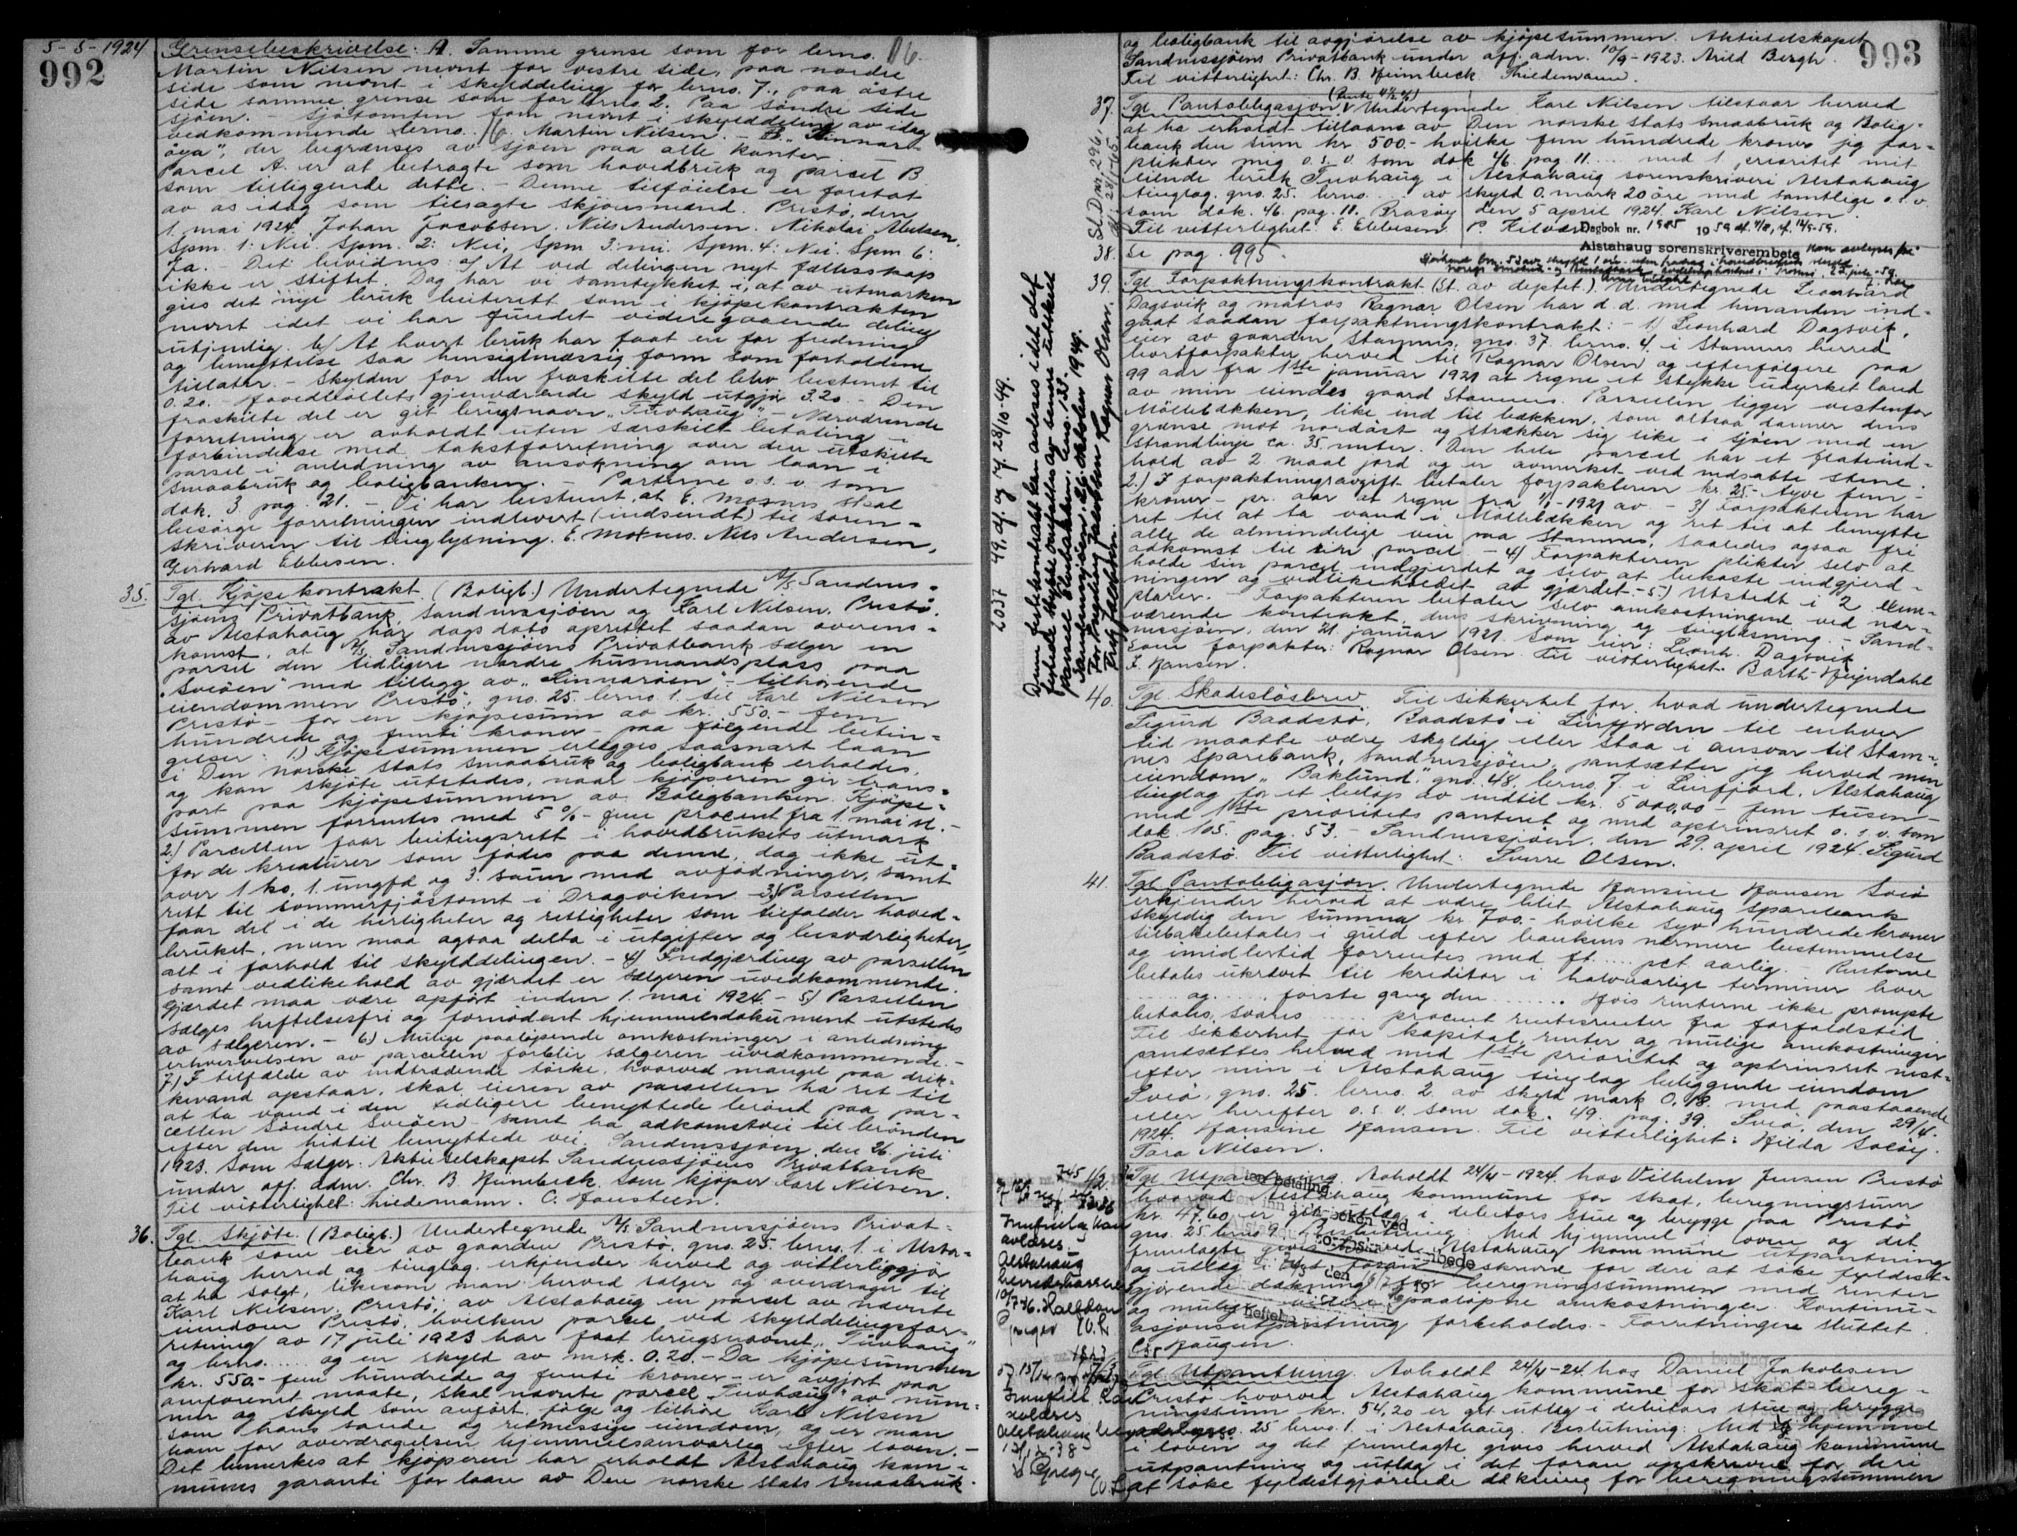 5-5-1924
992
Grensebeskrivelse: A. Samme grense som for brno.
Martin Nilsen nevnt for vestre side, paa nordre
side som nevnt i skylddeling for brno. 7., paa østre
side samme grense som for brno. 2. Paa søndre side
sjøen. - Sjøtomten som nevnt i skylddeling av idag
vedkommende brno. 16. Martin Nilsen. - B. "Kinnar-
øya", der begrænses av sjøen paa alle kanter.
Parcel A. er at betragte som hovedbruk og parcel B
som tilliggende dette. - Denne tilføielse er foretat
av os idag som tilsagte skjønsmænd. Pristø, den
1. mai 1924. Johan Jacobsen. Nils Andersen. Nikolai Abelsen.
Spm. 1: Nei. Spm. 2: Nei, Spm 3: nei. Spm. 4: Nei. Spm 6:
Ja. - Det bevidnes: a) At ved delingen nyt fællesskap
ikke er stiftet. Dog har vi samtykket i, at av utmarken
gies det nye bruk beiterett som i kjøpekontrakten
nevnt idet vi har fundet videregaaende deling
utjenlig. b) At hvert bruk har faat en for fredning
og benyttelse saa hensigtmæssig form som forholdene
tillater. - Skylden for den fraskilte del blev bestemt til
0.20. Hovedbøllets gjenværende skyld utgjør 3.20. - Den
fraskilte del er git bruksnavn "Tuvhaug". - Nærværende
forretning er avholdt uten særskilt betaling i
forbindelse med takstforretning over den utskilte
parsel i anledning av ansøkning om laan i
smaabruk og boligbanken. - Parterne o.s.v. som
dok. 3 pag. 21. - Vi har bestemt, at E. Mosnes skal
besørge forretningen indlevert (indsendt) til soren-
skriveren til tinglysning. E. Mosnes. Nils Andersen,
Gerhard Ebbesen.
35. Tgl. Kjøpekontrakt. (Boligb.) Undertegnede A/S Sandnes-
sjøens Privatbank, Sandnessjøen og Karl Nilsen, Pristø.
av Alstahaug har dags dato oprettet saadan overens-
komst, at A/S Sandnessjøens Privatbank sælger en
parsel den tidligere nordre husmandsplass paa
"Sveøen" med tillegg av "Kinnarøen" - tilhørende
eiendommen Pristø, gno. 25. brno. 1. til Karl Nilsen
Pristø - for en kjøpesum av kr. 550.- fem
hundrede og femti kroner - paa følgende betin-
gelser: 1) Kjøpesummen erlegges saasnart laan
i Den norske stats smaabruk og boligbank erholdes,
og kan skjøte utstedes, naar kjøperen gir trans-
port paa kjøpesummen av Boligbanken. Kjøpe-
summen forrentes med 5 % - fem procent fra 1. mai d. -
2.) Parcellen faar beitingsrett i hovedbrukets utmark
for de kreaturer som fødes paa denne, dog ikke ut-
over 1 ko, 1. ungfæ og 3. sauer med avfødninger, samt
rett til sommerfjøstomt i Dragviken - 3) Parsellen
faar del i de herligheter og rettigheter som tilfalder hoved-
bruket, men maa ogsaa delta i utgifter og besværligheter,
alt i forhold til skylddelingen. - 4) Indgjærding av parsellen
samt vedlikehold av gjærdet er sælgeren uvedkommende.
Gjærdet maa være opført inden 1. mai 1924. - 5) Parsellen
sælges heftelsesfri og fornødent hjemmelsdokument utstedes
av sælgeren. - 6) Mulige paaløpende omkostninger i anledning
erhvervelsen av parcellen forblir sælgeren uvedkommende. -
7.) I tilfælde av indtrædende tørke, hvorved mangel paa drik-
kevand opstaar, skal eieren av parsellen ha ret til
at ta vand i den tidligere benyttede brønd paa par-
cellen Søndre Sveøen - samt ha adkomstvei til brønden
efter den hittil benyttede vei. Sandnessjøen, den 26. juli
1923. Som sælger: Aktieselskapet Sandnessjøens Privatbank
under off. adm. Chr. B. Heimbeck. Som kjøper Karl Nilsen.
Til vitterlighet: Thiedemann. C. Hansteen.
36. Tgl. Skjøte. (Boligb.) Undertegnede A/S Sandnessjøens Privat-
bank som eier av gaarden Pristø, gno. 25. brno. 1. i Alsta-
haug herred og tinglag erkjender herved og vitterliggjør
at ha solgt, likesom man herved sælger og overdrager til
Karl Nilsen, Pristø, av Alstahaug en parsel av nævnte
eiendom Pristø, hvilken parsel ved skylddelingsfor-
retning av 17 juli 1923 har faat brugsnavnet "Tuvhaug"
og brno. .... og en skyld av mrk. 0.20. - Da kjøpesummen
kr. 550.- fem hundrede og femti kroner - er avgjort paa
omforenet maate, skal nævnte parcel "Tuvhaug" av num-
mer og skyld som anført, følge og tilhøre Karl Nilsen
som hans sande og retmessige eiendom, og er man
ham for overdragelsen hjemmelsansvarlig efter loven. -
Det bemerkes at kjøperen har erholdt Alstahaug kom-
munes garanti for laan av Den norske stats smaabruk-
993
og boligbank til avgjørelse av kjøpesummen. Aktieselskapet
Sandnessjøens Privatbank under off. adm. 10/9-1923. Arild Bergh.
Til vitterlighet: Chr. B. Heimbeck. Thiedemann.
37. Tgl. Pantobligasjon. Undertegnede Karl Nilsen tilstaar herved
at ha erholdt tillaans av Den norske stats smaabruk og Bolig-
bank den sum kr. 500.- hvilke fem hundrede kroner jeg for-
plikter meg o.s.v. som dok 46. pag 11. ... med 1. prioritet mit
eiende bruk Tuvhaug i Alstahaug sorenskriveri Alstahaug
tinglag. gno. 25. brno. ... av skyld 0. mark 20 øre med samtlige o.s.v.
som dok. 46. pag. 11. Brasøy den 5 april 1924. Karl Nilsen.
Til vitterlighet: E. Ebbesen. P
Dagbok nr. 1985 1959
Alstahaug sorenskriverembete
38. Se pag. 995.
39. Tgl. Forpaktningskontrakt (St. av deptet.) Undertegnede Leonhard
Dagsvik og matros Ragnar Olsen har d.d. med hinanden ind-
gaat saadan forpaktningskontrakt: - 1) Leonhard Dagsvik,
eier av gaarden Stamnes, gno. 37. brno. 4. i Stamnes herred
bortforpakter herved til Ragnar Olsen og efterfølgere paa
99 aar fra 1ste januar 1921 at regne et stykke udyrket land
av min eiendes gaard Stamnes. Parsellen ligger vestenfor
Møllebækken, like ind til bækken, som altsaa danner dens
grense mot nordøst og strækker sig like i sjøen med en
strandlinje ca. 35 meter. Den hele parcel har et flateind-
hold av 2 maal jord og er avmerket ved nedsatte stene.
2.) I forpaktningsavgift betaler forpakteren kr. 25.- tyve fem -
kroner - pr. aar at regne fra 1/1-1921 av - 3) Forpakteren har
ret til at ta vand i Møllebækken og ret til at benytte
alle de almindelige veie paa Stamnes, saaledes ogsaa fri
adkomst til sin parcel - 4) Forpakteren plikter selv at
holde sin parcel indgjerdet og selv at bekoste indgjerd-
ningen og vedlikeholdet av gjærdet. - 5) Utstedt i 2 eksem-
plarer. - Forpakteren betaler selv omkostningene ved nær-
værende kontrakt, dens skrivning og tinglæsning. - Sand-
nessjøen, den 21 januar 1921. Som eier: Leonh. Dagsvik
Som forpakter: Ragnar Olsen. Til vitterlighet: Barth-Heyerdahl
E. Hansen.
40. Tgl. Skadesløsbrev. Til sikkerhet for, hvad undertegnede
Sigurd Baadstø, Baadstø i Leirfjorden til enhver
tid maatte være skyldig eller staa i ansvar til Stam-
nes Sparebank, Sandnessjøen, pantsætter jeg herved min
eiendom "Baklund", gno. 48, brno. 7. i Leirfjord, Alstahaug
tinglag for et beløp av indtil kr. 5000,00 - fem tusen -
med 1ste prioritets panteret og med optrinsret o.s.v. som
dok. 105. pag. 53. - Sandnessjøen, den 29. april 1924. Sigurd
Baadstø. Til vitterlighet: Sverre Olsen.
41. Tgl. Pantobligasjon. Undertegnede Hansine Hansen Sveø
erkjender herved at være blit Alstahaug Sparebank
skyldig den summa kr. 700.- hvilke syv hundrede kroner
tilbakebetales i guld efter bankens nærmere bestemmelse
og imidlertid forrentes med ft. .... pct. aarlig. - Renterne
betales ukrævet til kreditor i halvaarlige terminer hver
.... og .... første gang den .... Hvis renterne ikke prompte
betales, svares .... procent rentesrenter fra forfaldstid.
Til sikkerhet for kapital, renter og mulige omkostninger
pantsættes herved med 1ste prioritet og optrinsret nest-
efter min i Alstahaug tinglag beliggende eiendom
Sveø, gno. 25. brno. 2. av skyld mark 0.18. med paastaaende
eller herefter o.s.v. som dok. 49. pag. 39. Sveø, den 29/4.
1924. Hansine Hansen. Til vitterlighet: Hilda Sveøy.
Tora Nilsen.
Tgl. Utpantning. Avholdt 24/4-1924. hos Vilhelm Jensen Pristø
hvorved Alstahaug kommune for skat, beregningssum
kr. 47,60 er git utlæg i debitors stue og brygge paa Pristø
gno. 25. brno. 9. Beslutning: Med hjemmel i loven og det
fremlagte gives herved Alstahaug kommune utpantning
og utlæg i det foran opskrevne for deri at søke fyldest-
gjørende dækning for beregningssummen med renter
og mulige videre paaløpne omkostninger. Kontinu-
asjonsutpantning forbeholdes. - Forretningen sluttet.
C. Haugen.
Tgl. Utpantning. Avholdt 24/4-24. hos Daniel Jakobsen
Pristø hvorved Alstahaug kommune for skat bereg-
ningssum kr. 54,20 er git utlæg i debitors stue og brygge
gno. 25 brno. 1. i Alstahaug. Beslutning: Med hjemmel
i loven og det fremlagte gives herved Alstahaug kommune
utpantning og utlæg i det foran opskrevne for deri
at søke fyldestgjørende dækning for beregningssummen
Denne festekontrakt kan avlæses idet det
festede stykke omfattes av senere utskilt
parsel Elvebakken. bno. 133.
Sandnessjøen, 26. oktober 1949.
For Ingeborg Jacobsen Ragnar Olsen.
2037 49. df. og nf. 28/10.49.